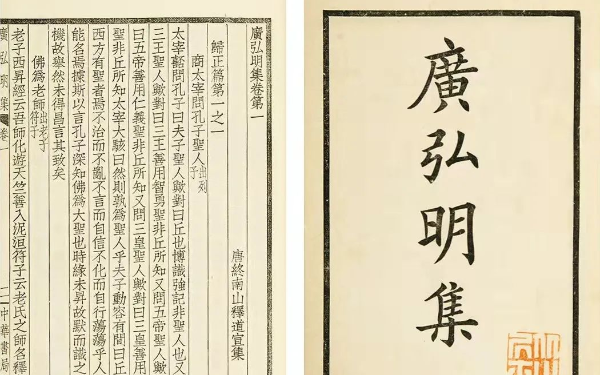 廣弘明集
廣弘明集卷第一
唐終南山釋道宣集
歸正篇第一之一
商太宰問孔子聖人出列子
太宰嚭問孔子曰夫子聖人歟對曰丘也博識強記非聖人也又
三王聖人歟對曰三王善用智勇聖非丘所知又問五帝聖人歟
曰五帝善用仁義聖非丘所知又問三皇聖人歟對曰三皇善用
聖非丘所知太宰大駭曰然則孰爲聖人乎夫子動容有間曰丘
西方有聖者焉不治而不亂不言而自信不化而自行蕩蕩乎人
能名焉據斯以言孔子深知佛爲大聖也時緣未昇故默而識之
機故舉然未得昌言其致矣
佛爲老師出老子符子
老子西昇經云吾師化遊天竺善入泥洹符子云老氏之師名釋
廣弘明集 卷一 一 中華書局